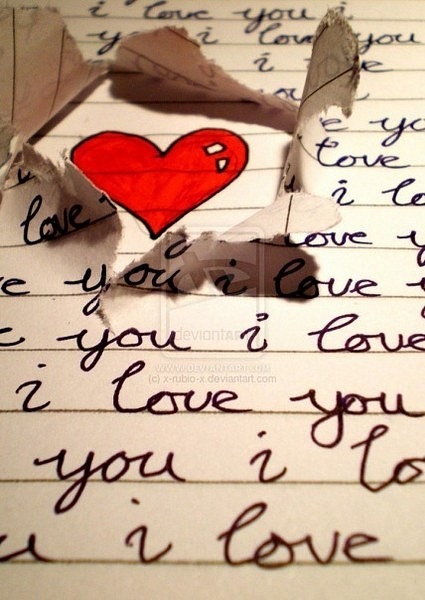 i love you i
you i love you
i
e yo
love
i lo
love
love y
e you i love y
e you i love
deviantART
WWW.DEVIANTART.COM
(c) x-rubio-x deviantart.com
i love you
you i lo
u i love